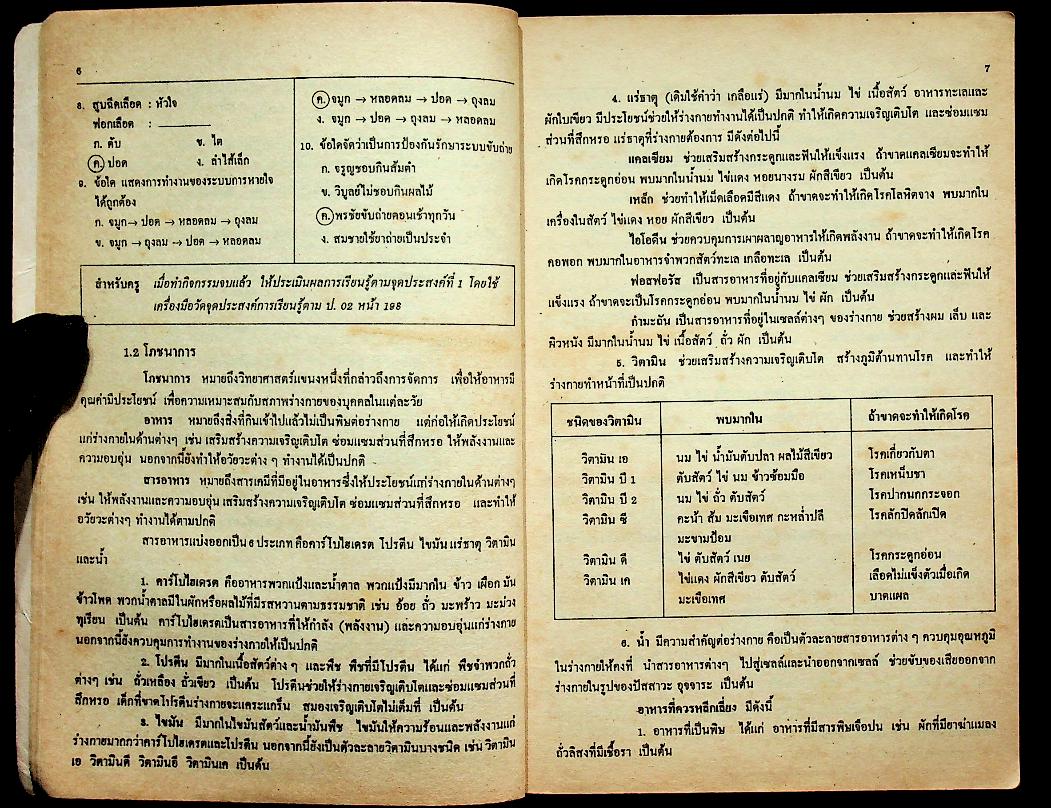 6
8. สูบฉีดเลือด : หัวใจ
ฟอกเลือด : ________
ก. ตับ ข. ไต
ค. ปอด ง. ลำไส้เล็ก
9. ข้อใด แสดงการทำงานของระบบการหายใจ
ได้ถูกต้อง
ก. จมูก → ปอด → หลอดลม → ถุงลม
ข. จมูก → ถุงลม → ปอด → หลอดลม
ค. จมูก → หลอดลม → ปอด → ถุงลม
ง. จมูก → ปอด → ถุงลม → หลอดลม
10. ข้อใดจัดว่าเป็นการป้องกันรักษาระบบขับถ่าย
ก. จรูญชอบกินส้มตำ
ข. วิบูลย์ไม่ชอบกินผลไม้
ค. พรชัยขับถ่ายตอนเช้าทุกวัน
ง. สมชายใช้ยาถ่ายเป็นประจำ
สำหรับครู เมื่อทำกิจกรรมจบแล้ว ให้ประเมินผลการเรียนรู้ตามจุดประสงค์ที่ 1 โดยใช้
เครื่องมือวัดจุดประสงค์การเรียนรู้ตาม ป. 02 หน้า 198
1.2 โภชนาการ
โภชนาการ หมายถึงวิทยาศาสตร์แขนงหนึ่งที่กล่าวถึงการจัดการ เพื่อให้อาหารมี
คุณค่ามีประโยชน์ เพื่อความเหมาะสมกับสภาพร่างกายของบุคคลในแต่ละวัย
อาหาร หมายถึงสิ่งที่กินเข้าไปแล้วไม่เป็นพิษต่อร่างกาย แต่ก่อให้เกิดประโยชน์
แก่ร่างกายในด้านต่างๆ เช่น เสริมสร้างความเจริญเติบโต ซ่อมแซมส่วนที่สึกหรอ ให้พลังงานและ
ความอบอุ่น นอกจากนี้ยังทำให้อวัยวะต่าง ๆ ทำงานได้เป็นปกติ
สารอาหาร หมายถึงสารเคมีที่มีอยู่ในอาหารซึ่งให้ประโยชน์แก่ร่างกายในด้านต่างๆ
เช่น ให้พลังงานและความอบอุ่น เสริมสร้างความเจริญเติบโต ซ่อมแซมส่วนที่สึกหรอ และทำให้
อวัยวะต่างๆ ทำงานได้ตามปกติ
สารอาหารแบ่งออกเป็น 6 ประเภท คือคาร์โบไฮเดรต โปรตีน ไขมัน แร่ธาตุ วิตามิน
และน้ำ
1. คาร์โบไฮเดรต คืออาหารพวกแป้งและน้ำตาล พวกแป้งมีมากใน ข้าว เผือก มัน
ข้าวโพด พวกน้ำตาลมีในผักหรือผลไม้ที่มีรสหวานตามธรรมชาติ เช่น อ้อย ถั่ว มะพร้าว มะม่วง
ทุเรียน เป็นต้น คาร์โบไฮเดรตเป็นสารอาหารที่ให้กำลัง (พลังงาน) และความอบอุ่นแก่ร่างกาย
นอกจากนี้ยังควบคุมการทำงานของร่างกายให้เป็นปกติ
2. โปรตีน มีมากในเนื้อสัตว์ต่าง ๆ และพืช พืชที่มีโปรตีน ได้แก่ พืชจำพวกถั่ว
ต่างๆ เช่น ถั่วเหลือง ถั่วเขียว เป็นต้น โปรตีนช่วยให้ร่างกายเจริญเติบโตและซ่อมแซมส่วนที่
สึกหรอ เด็กที่ขาดโปรตีนร่างกายจะแคระแกร็น สมองเจริญเติบโตไม่เต็มที่ เป็นต้น
3. ไขมัน มีมากในไขมันสัตว์และน้ำมันพืช ไขมันให้ความร้อนและพลังงานแก่
ร่างกายมากกว่าคาร์โบไฮเดรตและโปรตีน นอกจากนี้ยังเป็นตัวละลายวิตามินบางชนิด เช่น วิตามิน
เอ วิตามินดี วิตามินอี วิตามินเค เป็นต้น
7
4. แร่ธาตุ (เดิมใช้คำว่า เกลือแร่) มีมากในน้ำนม ไข่ เนื้อสัตว์ อาหารทะเลและ
ผักใบเขียว มีประโยชน์ช่วยให้ร่างกายทำงานได้เป็นปกติ ทำให้เกิดความเจริญเติบโต และซ่อมแซม
ส่วนที่สึกหรอ แร่ธาตุที่ร่างกายต้องการ มีดังต่อไปนี้
แคลเซียม ช่วยเสริมสร้างกระดูกและฟันให้แข็งแรง ถ้าขาดแคลเซียมจะทำให้
เกิดโรคกระดูกอ่อน พบมากในน้ำนม ไข่แดง หอยนางรม ผักสีเขียว เป็นต้น
เหล็ก ช่วยทำให้เม็ดเลือดมีสีแดง ถ้าขาดจะทำให้เกิดโรคโลหิตจาง พบมากใน
เครื่องในสัตว์ ไข่แดง หอย ผักสีเขียว เป็นต้น
ไอโอดีน ช่วยควบคุมการเผาผลาญอาหารให้เกิดพลังงาน ถ้าขาดจะทำให้เกิดโรค
คอพอก พบมากในอาหารจำพวกสัตว์ทะเล เกลือทะเล เป็นต้น
ฟอสฟอรัส เป็นสารอาหารที่อยู่กับแคลเซียม ช่วยเสริมสร้างกระดูกและฟันให้
แข็งแรง ถ้าขาดจะเป็นโรคกระดูกอ่อน พบมากในน้ำนม ไข่ ผัก เป็นต้น
กำมะถัน เป็นสารอาหารที่อยู่ในเซลล์ต่างๆ ของร่างกาย ช่วยสร้างผม เล็บ และ
ผิวหนัง มีมากในน้ำนม ไข่ เนื้อสัตว์ ถั่ว ผัก เป็นต้น
5. วิตามิน ช่วยเสริมสร้างความเจริญเติบโต สร้างภูมิต้านทานโรค และทำให้
ร่างกายทำหน้าที่เป็นปกติ
ชนิดของวิตามิน พบมากใน ถ้าขาดจะทำให้เกิดโรค
วิตามิน เอ นม ไข่ น้ำมันตับปลา ผลไม้สีเขียว โรคเกี่ยวกับตา
วิตามิน บี 1 ตับสัตว์ ไข่ นม ข้าวซ้อมมือ โรคเหน็บชา
วิตามิน บี 2 นม ไข่ ถั่ว ตับสัตว์ โรคปากนกกระจอก
วิตามิน ซี คะน้า ส้ม มะเขือเทศ กะหล่ำปลี โรคลักปิดลักเปิด
มะขามป้อม
วิตามิน ดี ไข่ ตับสัตว์ เนย โรคกระดูกอ่อน
วิตามิน เค ไข่แดง ผักสีเขียว ตับสัตว์ เลือดไม่แข็งตัวเมื่อเกิด
มะเขือเทศ บาดแผล
6. น้ำ มีความสำคัญต่อร่างกาย คือเป็นตัวละลายสารอาหารต่าง ๆ ควบคุมอุณหภูมิ
ในร่างกายให้คงที่ นำสารอาหารต่างๆ ไปสู่เซลล์และนำออกจากเซลล์ ช่วยขับของเสียออกจาก
ร่างกายในรูปของปัสสาวะ อุจจาระ เป็นต้น
อาหารที่ควรหลีกเลี่ยง มีดังนี้
1. อาหารที่เป็นพิษ ได้แก่ อาหารที่มีสารพิษเจือปน เช่น ผักที่มียาฆ่าแมลง
ถั่วลิสงที่มีเชื้อรา เป็นต้น